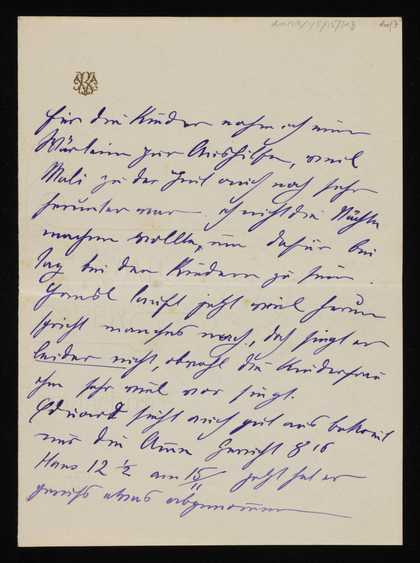 für die Kinder nahm ich eine
Wärterin zur Aushilfe, weil
Mali zu der Zeit auch noch sehr
herunter war. ich nicht die Nächte
machen wollte, um dafür bei
Tag bei den Kindern zu sein.
Hansl lauft jetzt viel herum
spricht manches nach, doch singt er
leider nicht, obwohl die Kinderfrau
ihm sehr viel vor singt.
Eduard sieht auch gut aus bekomt
nur die Amme Gewicht 8 16
Hans 12 ½ am 15/11 jetzt hat er
gewiss etwas abgenommen